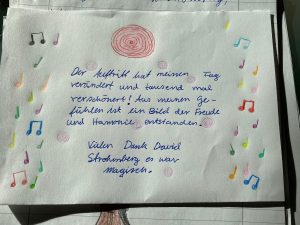 Der Auftritt hat meinen Tag
verändert und tausend mal
verschönert! Aus meinen Ge-
fühlen ist ein Bild der Freude
und Harmonie entstanden.
Vielen Dank David
Strohmberg es war
magisch.